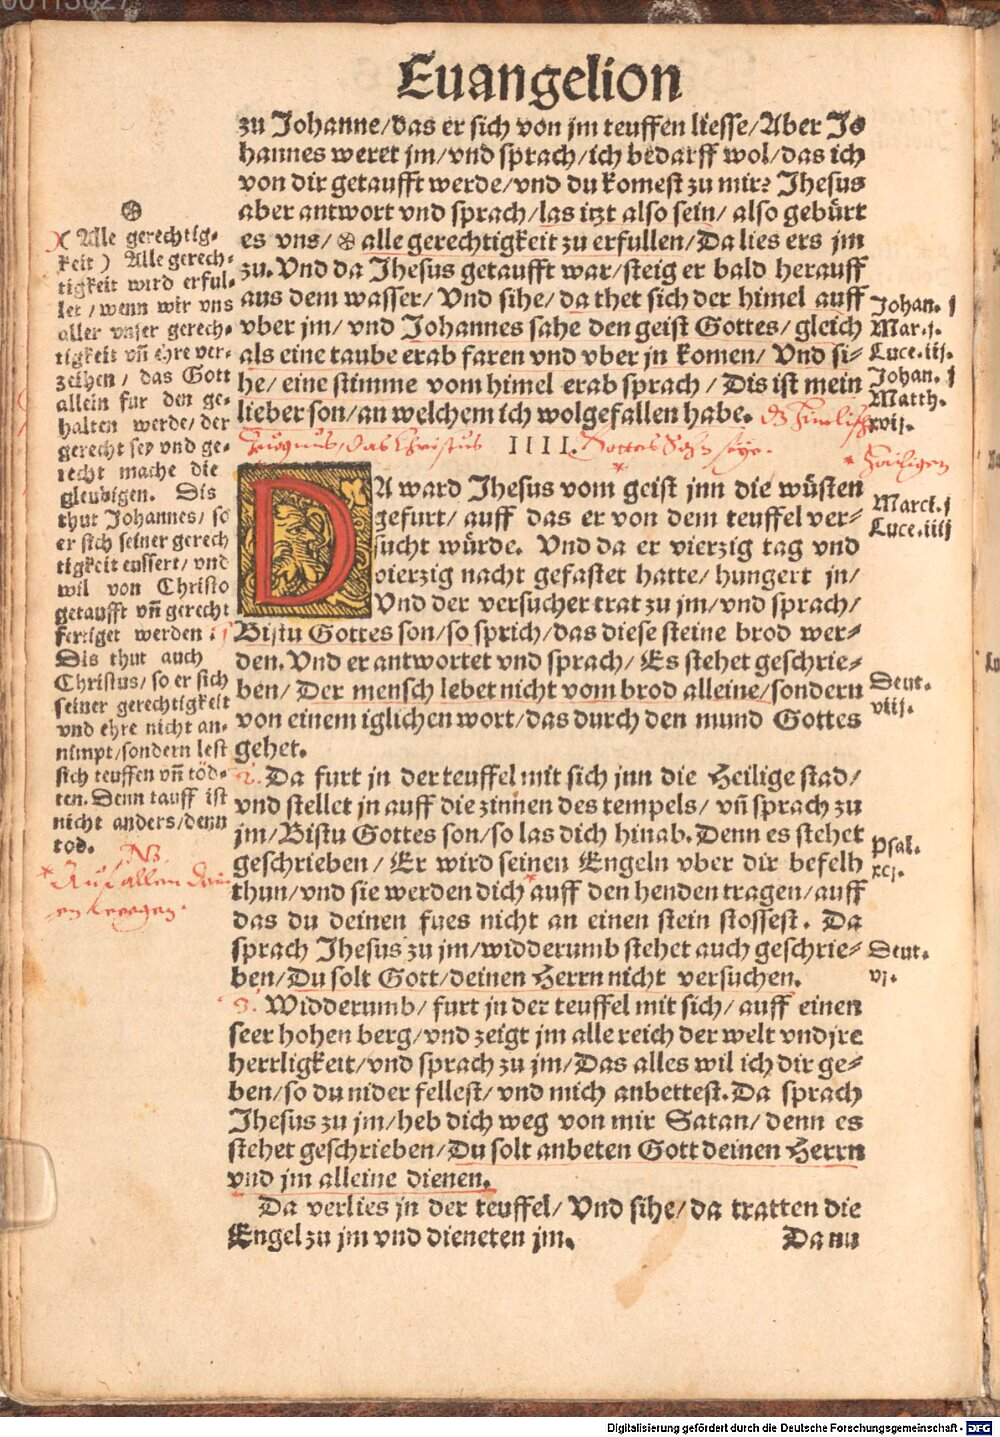 Euangelion
zu Johanne/das er sich von jm teuffen liesse/Aber Jo
hannes weret jm/vnd sprach/ich bedarff wol/das ich
von dir getaufft werde/vnd du komest zu mir? Jhesus
aber antwort vnd sprach/las itzt also sein/also gebürt
es vns/ ⊛ alle gerechtigkeit zu erfullen/Da lies ers jm
zu. Vnd da Jhesus getaufft war/steig er bald herauff
aus dem wasser/Vnd sihe/da thet sich der himel auff
vber jm/vnd Johannes sahe den geist Gottes/gleich
als eine taube erab faren vnd vber jn komen/Vnd si⸗
he/eine stimme vom himel erab sprach/Dis ist mein
lieber son/an welchem ich wolgefallen habe.
das Christus
IIII.
Gottes Sohn seye.
DA ward Jhesus vom geist jnn die wüsten
gefurt/auff das er von dem teuffel ver⸗
sucht würde. Vnd da er vierzig tag vnd
vierzig nacht gefastet hatte/hungert jn/
Vnd der versucher trat zu jm/vnd sprach/
Bistu Gottes son/so sprich/das diese steine brod wer⸗
den. Vnd er antwortet vnd sprach/Es stehet geschrie⸗
ben/Der mensch lebet nicht vom brod alleine/sondern
von einem iglichen wort/das durch den mund Gottes
gehet.
2. Da furt jn der teuffel mit sich jnn die Heilige stad/
vnd stellet jn auff die zinnen des tempels/vn̄ sprach zu
jm/Bistu Gottes son/so las dich hinab. Denn es stehet
geschrieben/Er wird seinen Engeln vber dir befelh
thun/vnd sie werden dich * auff den henden tragen/auff
das du deinen fues nicht an einen stein stossest. Da
sprach Jhesus zu jm/widderumb stehet auch geschrie⸗
ben/Du solt Gott/deinen Herrn nicht versuchen.
3. Widderumb/furt jn der teuffel mit sich/auff einen
seer hohen berg/vnd zeigt jm alle reich der welt vnd jre
herrligkeit/vnd sprach zu jm/Das alles wil ich dir ge⸗
ben/so du nider fellest/vnd mich anbettest. Da sprach
Jhesus zu jm/heb dich weg von mir Satan/denn es
stehet geschrieben/Du solt anbeten Gott deinen Herrn
vnd jm alleine dienen.
Da verlies jn der teuffel/Vnd sihe/da tratten die
Engel zu jm vnd dieneten jm.
Da nu
⊛
(Alle gerechtig⸗
keit) Alle gerech⸗
tigkeit wird erful⸗
let/wenn wir vns
aller vnser gerech⸗
tigkeit vn̄ ehre ver⸗
zeihen/das Gott
allein fur den ge⸗
halten werde/der
gerecht sey vnd ge⸗
recht mache die
gleubigen. Dis
thut Johannes/so
er sich seiner gerech
tigkeit eussert/vnd
wil von Christo
getaufft vn̄ gerecht
fertiget werden :
Dis thut auch
Christus/so er sich
seiner gerechtigkeit
vnd ehre nicht an⸗
nimpt/sondern lest
sich teuffen vn̄ töd⸗
ten. Denn tauff ist
nicht anders/denn
tod.
NB
* Auf allen dein
en
Johan. j
Mar. j.
Luce. iij.
Johan. j
Matth.
xvij.
Marci. j
Luce. iiij
Deut.
viij.
Psal.
xcj.
Deut.
vj.
Digitalisierung gefördert durch die Deutsche Forschungsgemeinschaft - DFG